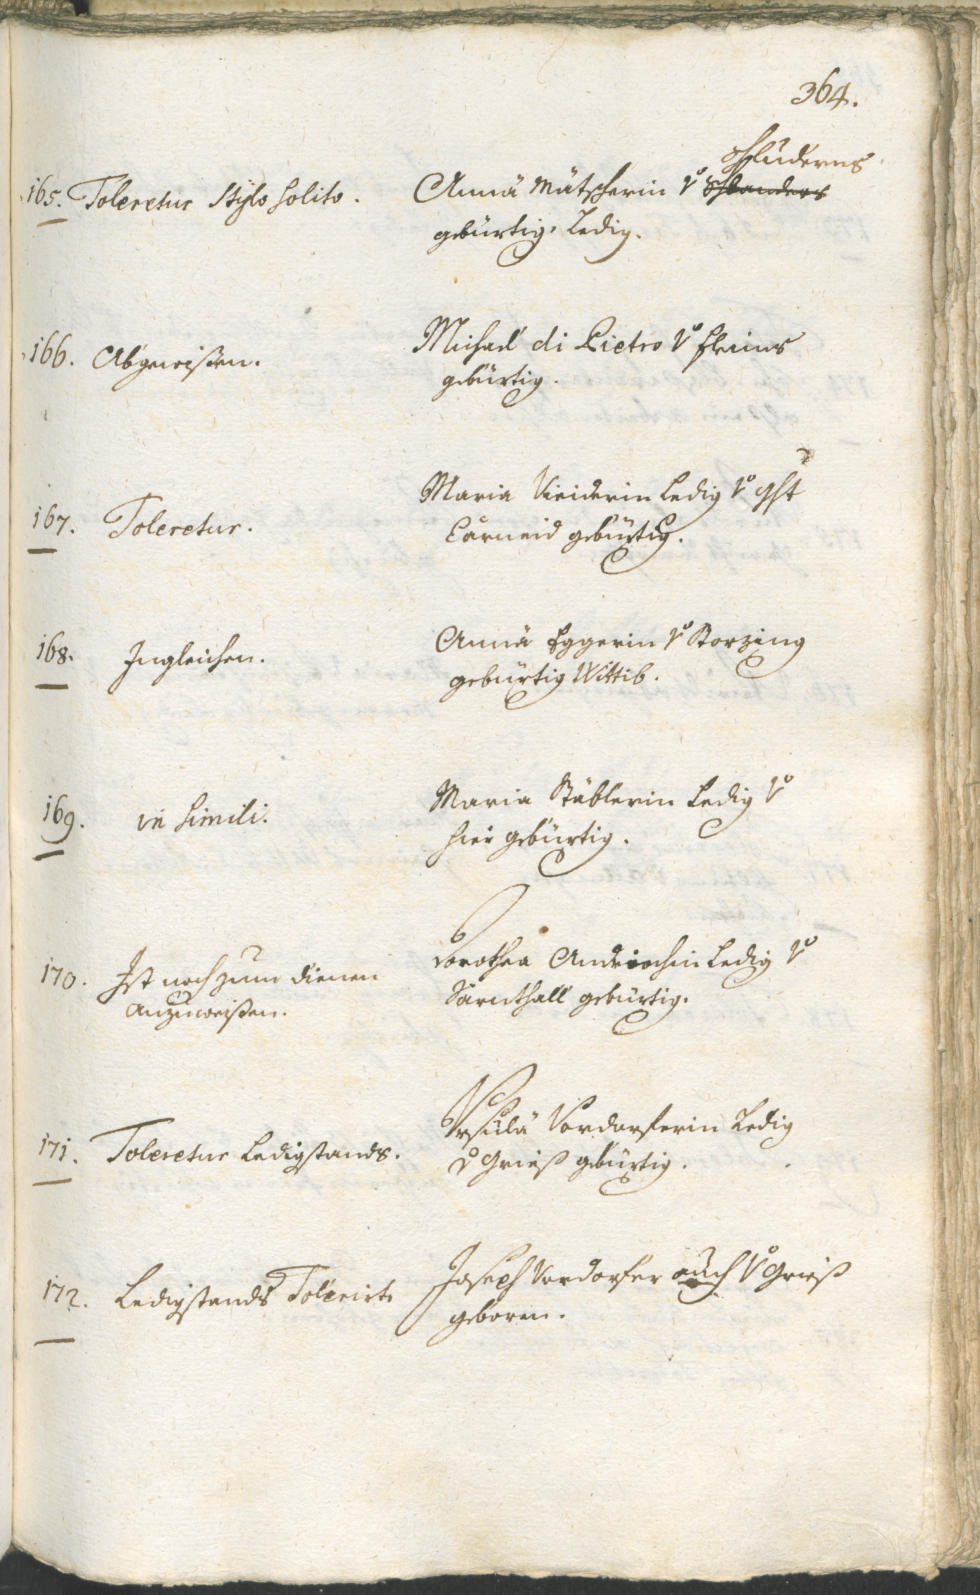 364.
165. Toleretur stylo solito.
Anna Mätscherin v Schluderns
Schlanders
gebürtig, Ledig.
166. Abgewißen.
Michael di Pietro v Fleims
gebürtig.
167. Toleretur.
Maria Ledig v
Carneid gebürtig.
168. Ingleichen.
Anna Eggerin v Storzing
gebürtig Wittib.
169. in simili.
Maria Stäblerin Ledig v
hier gebürtig.
170. Ist noch zum dienen
anzuweisen.
Dorothea Ledig v
Sarnthall gebürtig.
171. Toleretur Ledigstands.
Ursula Vordorferin Ledig
v Grieß gebürtig.
172. Ledigstands Tolerirt.
Joseph Vordorfer auch v Grieß
geboren.